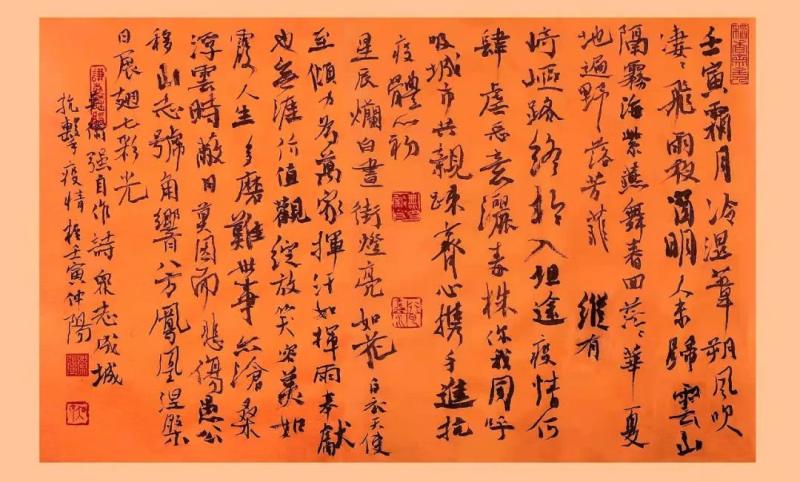 壬寅霜月冷湿苇朔风吹
凄凄飛雨敲窗明人未歸雲山
隔霧海紫燕舞春回燕燕華夏
地遍野落芳菲
縱有
崎岖路終於入坦途疫情何
肆虐恣意灑毒株你我同呼
吸城市共親疎齊心携手進抗
疫體心初
星辰爛白晝街燈亮如花白衣天使
至傾力为萬家揮汗如揮雨奉獻
也無涯价值觀綻放笑容美如
霞人生多磨難世事亦滄桑
浮雲時蔽日莫因而悲傷愚公
移山志號角響八方鳳凰涅槃
日展翅七彩光
强自作詩衆志成城
抗擊疫情於壬寅仲陽